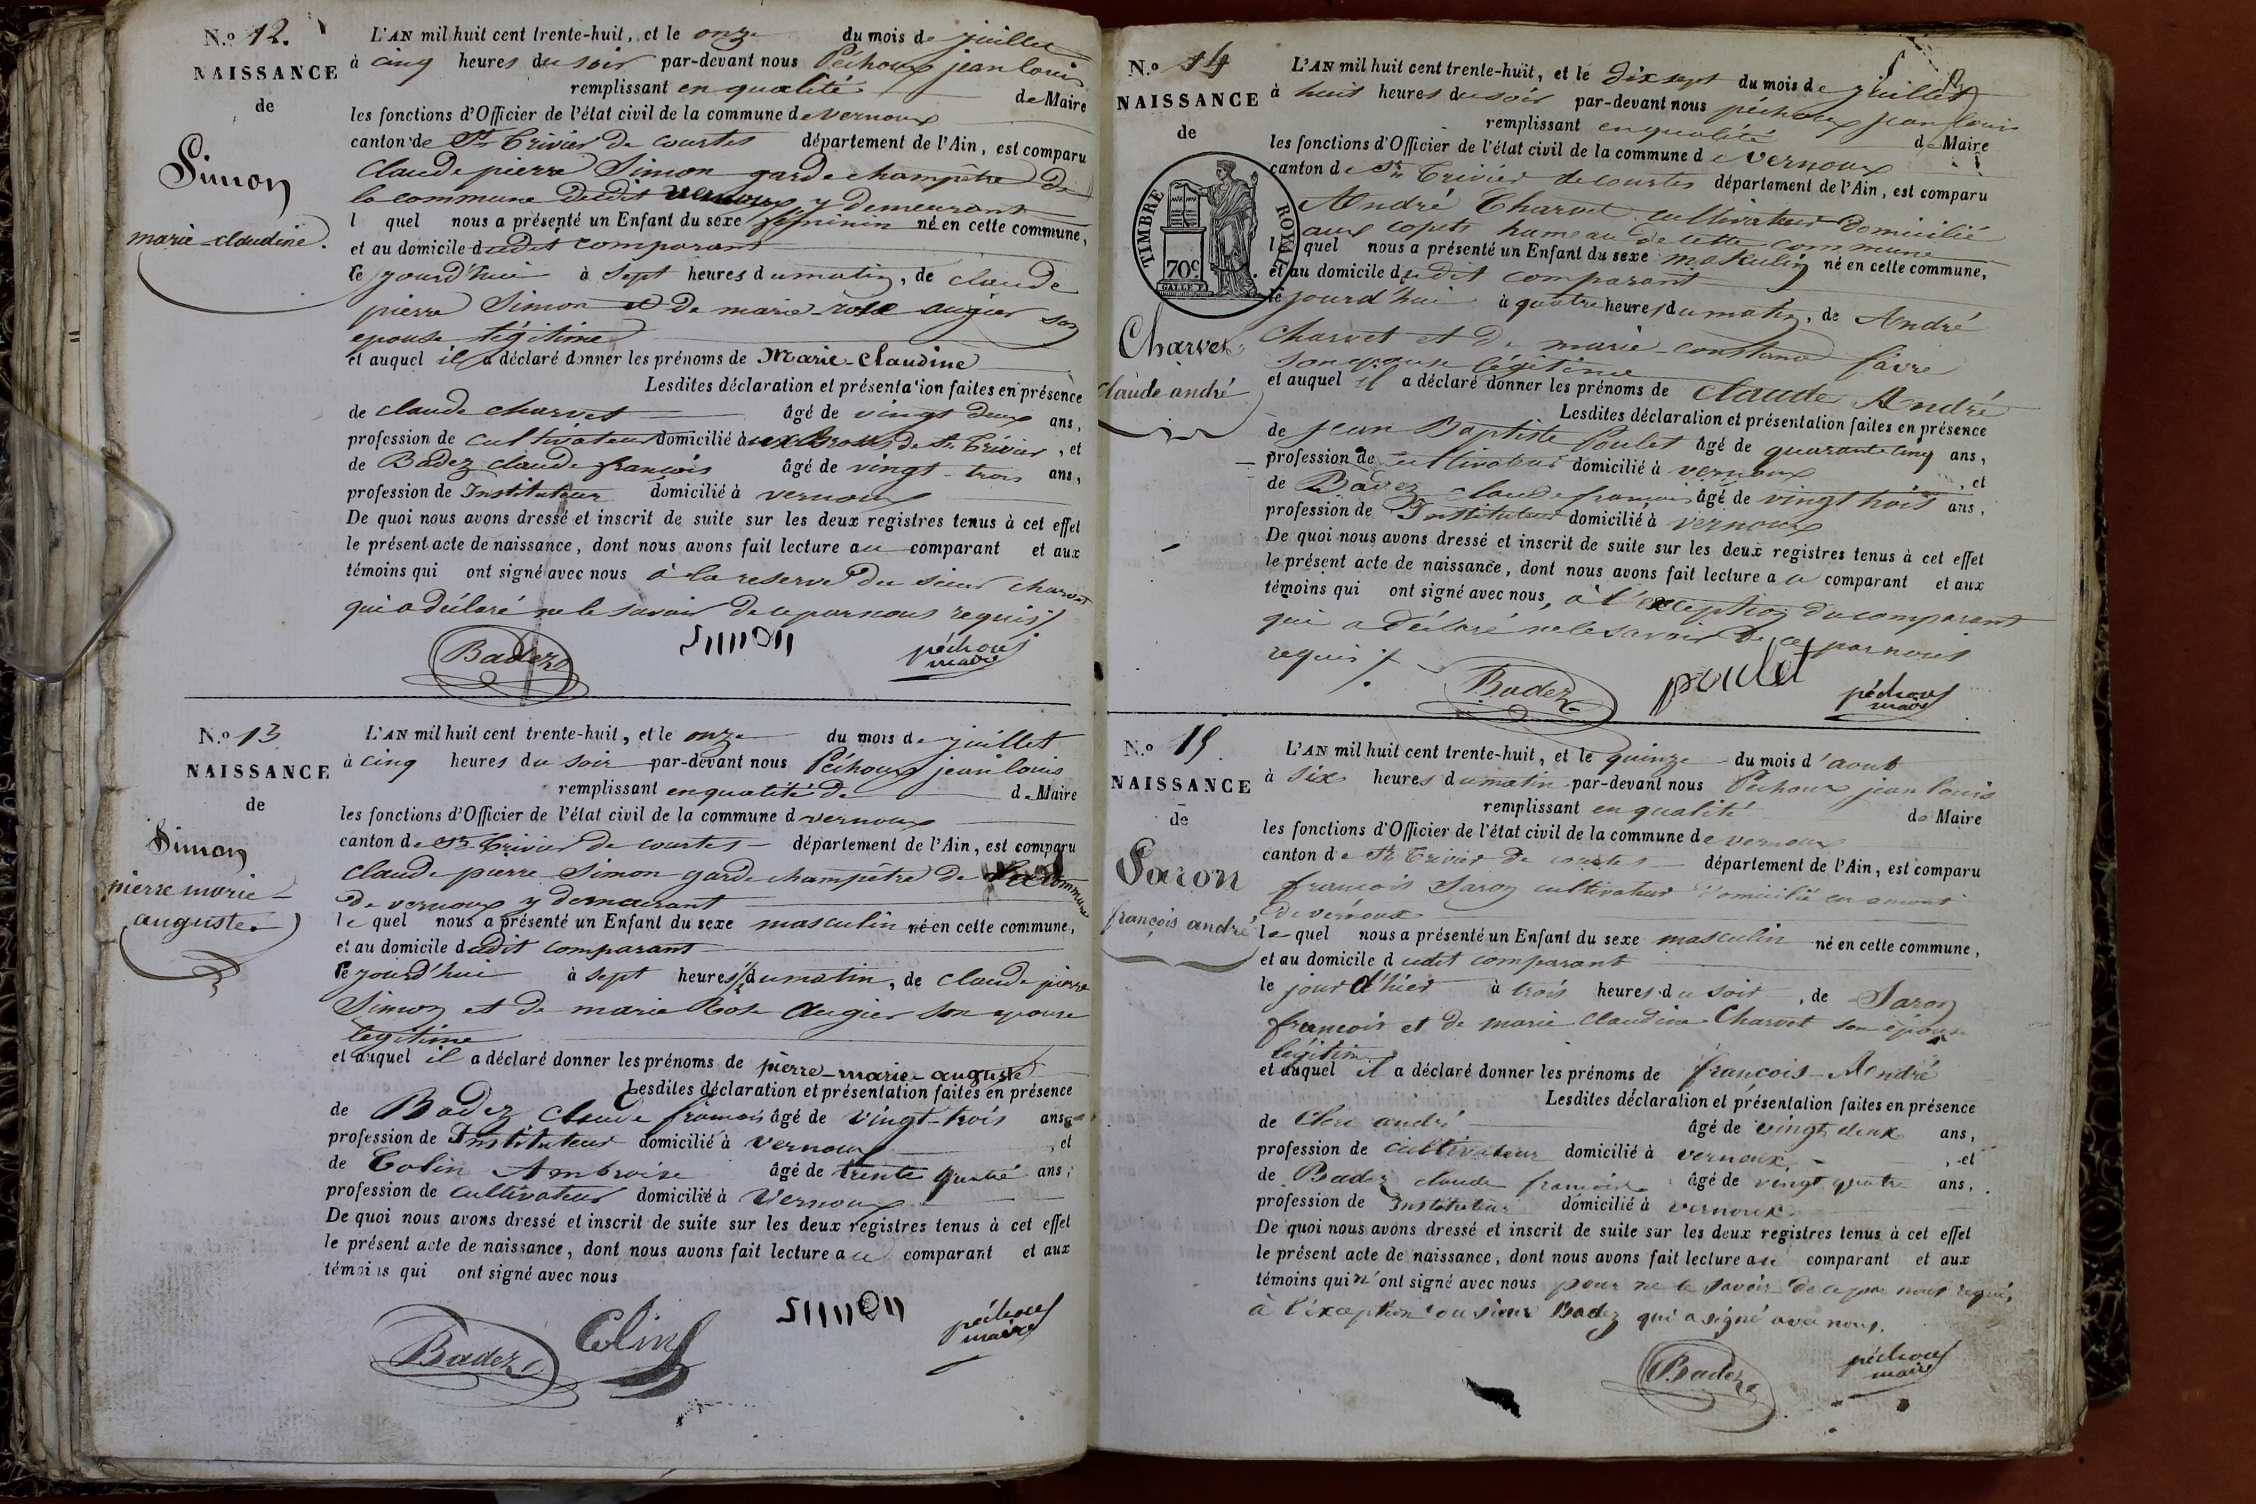 N.o 12.
NAISSANCE
de
Simon
marie-claudine.
L'AN mil huit cent trente-huit, et le onze du mois de juillet
à cinq heures du soir par-devant nous Péchoux jean louis
remplissant en qualité de Maire
les fonctions d'Officier de l'état civil de la commune de vernoux
canton de St Trivier de courtes département de l'Ain, est comparu
Claude pierre Simon garde champêtre de
la commune dudit vernoux y demeurant
l quel nous a présenté un Enfant du sexe féminin né en cette commune,
et au domicile dudit comparant
le jourd'hui à sept heures du matin, de claude
pierre Simon et de marie rose augier son
epouse légitime
et auquel il a déclaré donner les prénoms de Marie-Claudine
Lesdites déclaration et présentation faites en présence
de claude charvet âgé de vingt deux ans,
profession de cultivateur domicilié à de St Trivier, et
de Badez claude françois âgé de vingt-trois ans,
profession de Instituteur domicilié à vernoux
De quoi nous avons dressé et inscrit de suite sur les deux registres tenus à cet effet
le présent acte de naissance, dont nous avons fait lecture au comparant et aux
témoins qui ont signé avec nous à la reserve du sieur charvet
qui a déclaré ne le savoir de ce par nous requis
Badez Simon péchoux
maire
N.o 13
NAISSANCE
de
Simon
pierre marie
auguste
L'AN mil huit cent trente-huit, et le onze du mois de juillet
à cinq heures du soir par-devant nous Péchoux jean louis
remplissant en qualité de de Maire
les fonctions d'Officier de l'état civil de la commune d vernoux
canton de St Trivier de courtes département de l'Ain, est comparu
Claude pierre Simon garde champêtre de la commune
de vernoux y demeurant
le quel nous a présenté un Enfant du sexe masculin né en cette commune,
et au domicile dudit comparant
le jourd'hui à sept heures du matin, de claude pierre
Simon et de marie Rose Augier son epouse
légitime
et auquel il a déclaré donner les prénoms de pierre-marie-auguste
Lesdites déclaration et présentation faites en présence
de Badez Claude françois âgé de vingt-trois ans
profession de Instituteur domicilié à vernoux, et
de Colin Ambroise âgé de trente quatre ans,
profession de cultivateur domicilié à Vernoux
De quoi nous avons dressé et inscrit de suite sur les deux registres tenus à cet effet
le présent acte de naissance, dont nous avons fait lecture au comparant et aux
témoins qui ont signé avec nous
Badez Colin Simon péchoux
maire
N.o 14
NAISSANCE
de
TIMBRE ROYAL
70c.
Charvet
claude andré
L'AN mil huit cent trente-huit, et le dix sept du mois de juillet
à huit heures du soir par-devant nous péchoux jean louis
remplissant en qualité de Maire
les fonctions d'Officier de l'état civil de la commune de vernoux
canton de St Trivier de courtes département de l'Ain, est comparu
André Charvet cultivateur domicilié
aux hameau de cette commune
l quel nous a présenté un Enfant du sexe maskulin né en cette commune,
et au domicile dudit comparant
le jourd'hui à quatre heures du matin, de André
charvet et de marie-constance favre
son epouse légitime
et auquel il a déclaré donner les prénoms de Claude André
Lesdites déclaration et présentation faites en présence
de jean Baptiste Poulet âgé de quarante cinq ans,
profession de cultivateur domicilié à vernoux, et
de Badez claude françois âgé de vingt trois ans,
profession de Instituteur domicilié à vernoux
De quoi nous avons dressé et inscrit de suite sur les deux registres tenus à cet effet
le présent acte de naissance, dont nous avons fait lecture au comparant et aux
témoins qui ont signé avec nous, à l'exception du comparant
qui a déclaré ne le savoir de ce par nous
requis
Badez poulet péchoux
maire
N.o 15.
NAISSANCE
de
Saron
françois andré
L'AN mil huit cent trente-huit, et le quinze du mois d'aout
à six heures du matin par-devant nous Péchoux jean louis
remplissant en qualité de Maire
les fonctions d'Officier de l'état civil de la commune de vernoux
canton de St Trivier de courtes département de l'Ain, est comparu
françois Saron cultivateur domicilié en amont
de vernoux
le quel nous a présenté un Enfant du sexe masculin né en cette commune,
et au domicile dudit comparant
le jour d'hier à trois heures du soir, de Saron
françois et de marie Claudine Charvet son épouse
légitime
et auquel il a déclaré donner les prénoms de françois-André
Lesdites déclaration et présentation faites en présence
de Clere andré âgé de vingt deux ans,
profession de cultivateur domicilié à vernoux, et
de Badez claude françois âgé de vingt quatre ans,
profession de Instituteur domicilié à vernoux
De quoi nous avons dressé et inscrit de suite sur les deux registres tenus à cet effet
le présent acte de naissance, dont nous avons fait lecture au comparant et aux
témoins qui n'ont signé avec nous pour ne le savoir de ce par nous requis,
à l'exception du sieur Badez qui a signé avec nous.
Badez péchoux
maire